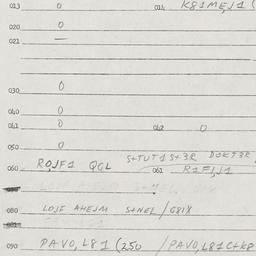 013 0 014 K81MEJ1 (
020 0
021 —
030 0
040 0
041 0 042 0
050 0
060 ROJF1 QGL STUT1 S+3R DOKT3R
061 R1F1J1
080 LOJF AHEJM S+NEL/G81X
090 PAVO, L81 (250 / PAVO, L81 C+K8